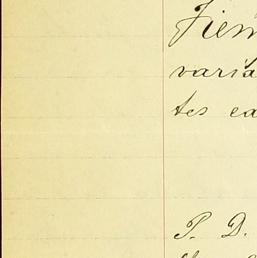 Fiem
varia
tes ea
P. D.